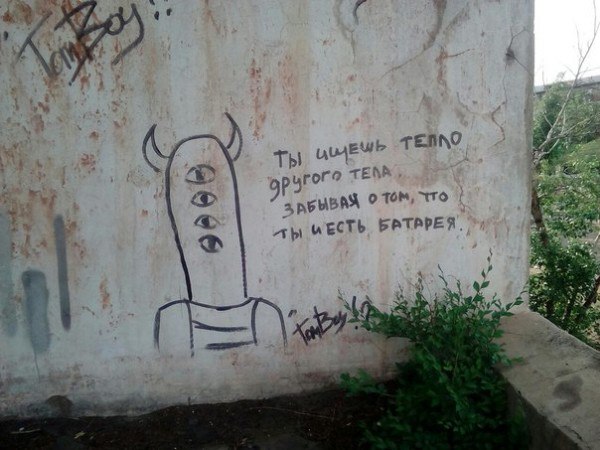 "TomBoy"
ты ищешь тепло
другого тела.
забывая о том, что
ты и есть батарея.
"TomBoy"